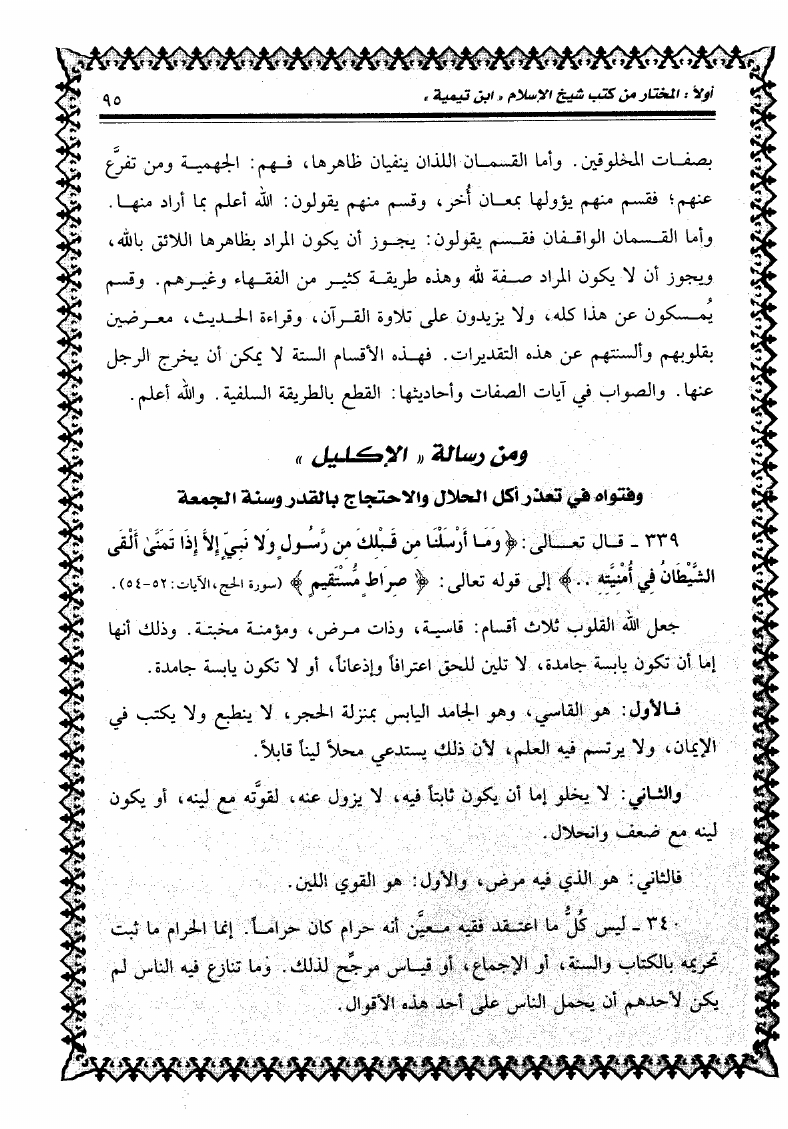 أولاً : المختار من كتب شيخ الإسلام « ابن تيمية » ٩٥
بصفات المخلوقين. وأما القسمان اللذان ينفيان ظاهرها، فهم: الجهمية ومن تفرَّع
عنهم؛ فقسم منهم يؤولها بمعان أُخر، وقسم منهم يقولون: الله أعلم بما أراد منها.
وأما القسمان الواقفان فقسم يقولون: يجوز أن يكون المراد بظاهرها اللائق بالله،
ويجوز أن لا يكون المراد صفة لله وهذه طريقة كثير من الفقهاء وغيرهم. وقسم
يُمسكون عن هذا كله، ولا يزيدون على تلاوة القرآن، وقراءة الحديث، معرضين
بقلوبهم وألسنتهم عن هذه التقديرات. فهذه الأقسام الستة لا يمكن أن يخرج الرجل
عنها. والصواب في آيات الصفات وأحاديثها: القطع بالطريقة السلفية. والله أعلم.
ومن رسالة « الإكليل »
وفتواه في تعذر أكل الحلال والاحتجاج بالقدر وسنة الجمعة
٣٣٩ - قال تعالى: ﴿ وَمَا أَرْسَلْنَا مِن قَبْلِكَ مِن رَّسُولٍ وَلا نَبِيٍّ إِلاَّ إِذَا تَمَنَّىٰ أَلْقَى
الشَّيْطَانُ فِي أُمْنِيَّتِهِ ..﴾ إلى قوله تعالى: ﴿ صِرَاطٍ مُّسْتَقِيمٍ ﴾ (سورة الحج، الآيات: ٥٢-٥٤).
جعل الله القلوب ثلاث أقسام: قاسية، وذات مرض، ومؤمنة مخبتة. وذلك أنها
إما أن تكون يابسة جامدة، لا تلين للحق اعترافاً وإذعاناً، أو لا تكون يابسة جامدة.
فالأول: هو القاسي، وهو الجامد اليابس بمنزلة الحجر، لا ينطبع ولا يكتب في
الإيمان، ولا يرتسم فيه العلم، لأن ذلك يستدعي محلاً ليناً قابلاً.
والثاني: لا يخلو إما أن يكون ثابتاً فيه، لا يزول عنه، لقوَّته مع لينه، أو يكون
لينه مع ضعف وانحلال.
فالثاني: هو الذي فيه مرض، والأول: هو القوي اللين.
٣٤٠ - ليس كُلُّ ما اعتقد فقيه معيَّن أنه حرام كان حراماً. إنما الحرام ما ثبت
تحريمه بالكتاب والسنة، أو الإجماع، أو قياس مرجِّح لذلك. وما تنازع فيه الناس لم
يكن لأحدهم أن يحمل الناس على أحد هذه الأقوال.